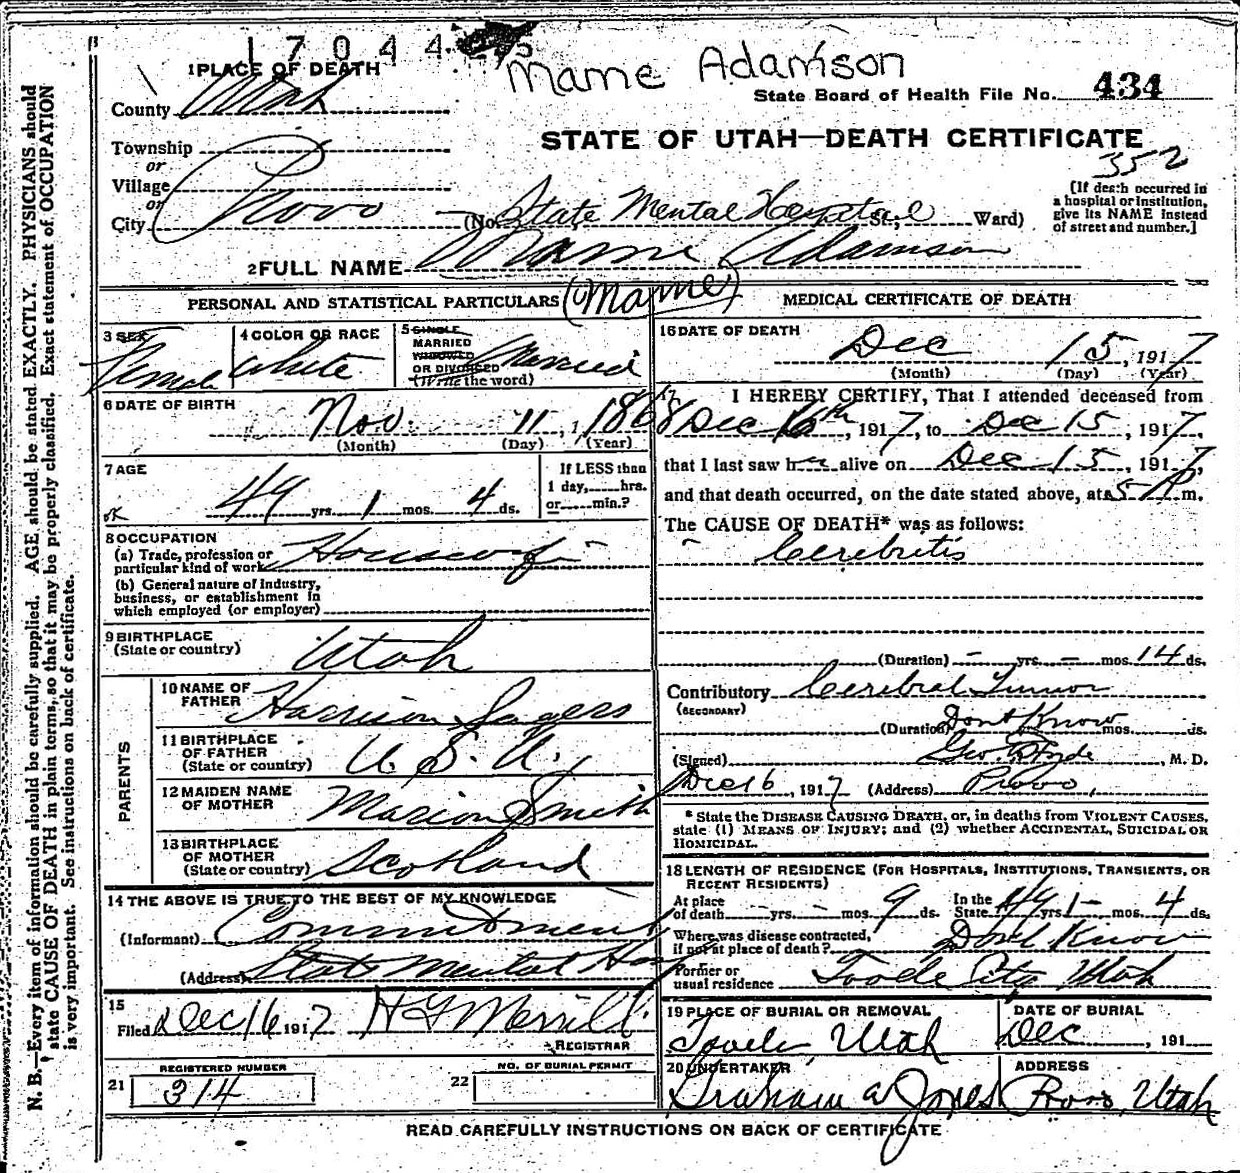 17044
Mame Adamson
1 PLACE OF DEATH
County Utah
State Board of Health File No. 434
STATE OF UTAH—DEATH CERTIFICATE
352
Township
or
Village
or
City Provo (No. State Mental Hospital St., Ward)
[If death occurred in
a hospital or institution,
give its NAME instead
of street and number.]
2 FULL NAME Mame Adamson
(Mame)
PERSONAL AND STATISTICAL PARTICULARS
3 SEX Female
4 COLOR OR RACE White
5 SINGLE
MARRIED
WIDOWED
OR DIVORCED
(Write the word) Married
6 DATE OF BIRTH
Nov. 11, 1868
(Month) (Day) (Year)
7 AGE
49 yrs. 1 mos. 4 ds.
If LESS than
1 day, hrs.
or min.?
OK
8 OCCUPATION
(a) Trade, profession or
particular kind of work Housewife
(b) General nature of industry,
business, or establishment in
which employed (or employer)
9 BIRTHPLACE
(State or country) Utah
PARENTS
10 NAME OF
FATHER Harrison Sagers
11 BIRTHPLACE
OF FATHER
(State or country) U. S. A.
12 MAIDEN NAME
OF MOTHER Marion Smith
13 BIRTHPLACE
OF MOTHER
(State or country) Scotland
14 THE ABOVE IS TRUE TO THE BEST OF MY KNOWLEDGE
(Informant) Commitment
(Address) State Mental Hosp
15
Filed Dec 16 1917 H G Merrill
REGISTRAR
21 REGISTERED NUMBER
314
22 NO. OF BURIAL PERMIT
MEDICAL CERTIFICATE OF DEATH
16 DATE OF DEATH
Dec 15, 1917
(Month) (Day) (Year)
17
I HEREBY CERTIFY, That I attended deceased from
Dec 6th, 1917, to Dec 15, 1917,
that I last saw her alive on Dec 15, 1917,
and that death occurred, on the date stated above, at 5 P m.
The CAUSE OF DEATH* was as follows:
Cerebritis
(Duration) — yrs. — mos. 14 ds.
Contributory Cerebral Tumor
(SECONDARY)
(Duration) Dont Know mos. ds.
(Signed) Geo. E Hyde, M. D.
Dec 16, 1917 (Address) Provo,
* State the DISEASE CAUSING DEATH, or, in deaths from VIOLENT CAUSES,
state (1) MEANS OF INJURY; and (2) whether ACCIDENTAL, SUICIDAL OR
HOMICIDAL.
18 LENGTH OF RESIDENCE (FOR HOSPITALS, INSTITUTIONS, TRANSIENTS, OR
RECENT RESIDENTS)
At place
of death - yrs. - mos. 9 ds.
In the
State 49 yrs. 1 mos. 4 ds.
Where was disease contracted,
if not at place of death? Dont Know
Former or
usual residence Tooele City Utah
19 PLACE OF BURIAL OR REMOVAL
Tooele, Utah
DATE OF BURIAL
Dec , 191
20 UNDERTAKER
Graham & Jones
ADDRESS
Provo, Utah
READ CAREFULLY INSTRUCTIONS ON BACK OF CERTIFICATE
N. B.—Every item of information should be carefully supplied. AGE, should be stated EXACTLY. PHYSICIANS should
state CAUSE OF DEATH in plain terms, so that it may be properly classified. Exact statement of OCCUPATION
is very important. See instructions on back of certificate.